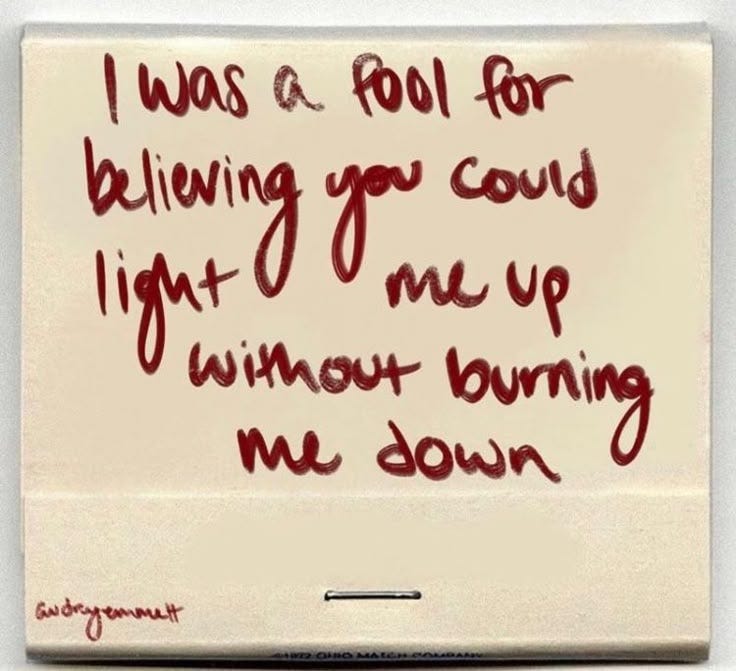 I was a fool for
believing you could
light me up
without burning
me down
audreyemmett
OHIO MATCH COMPANY